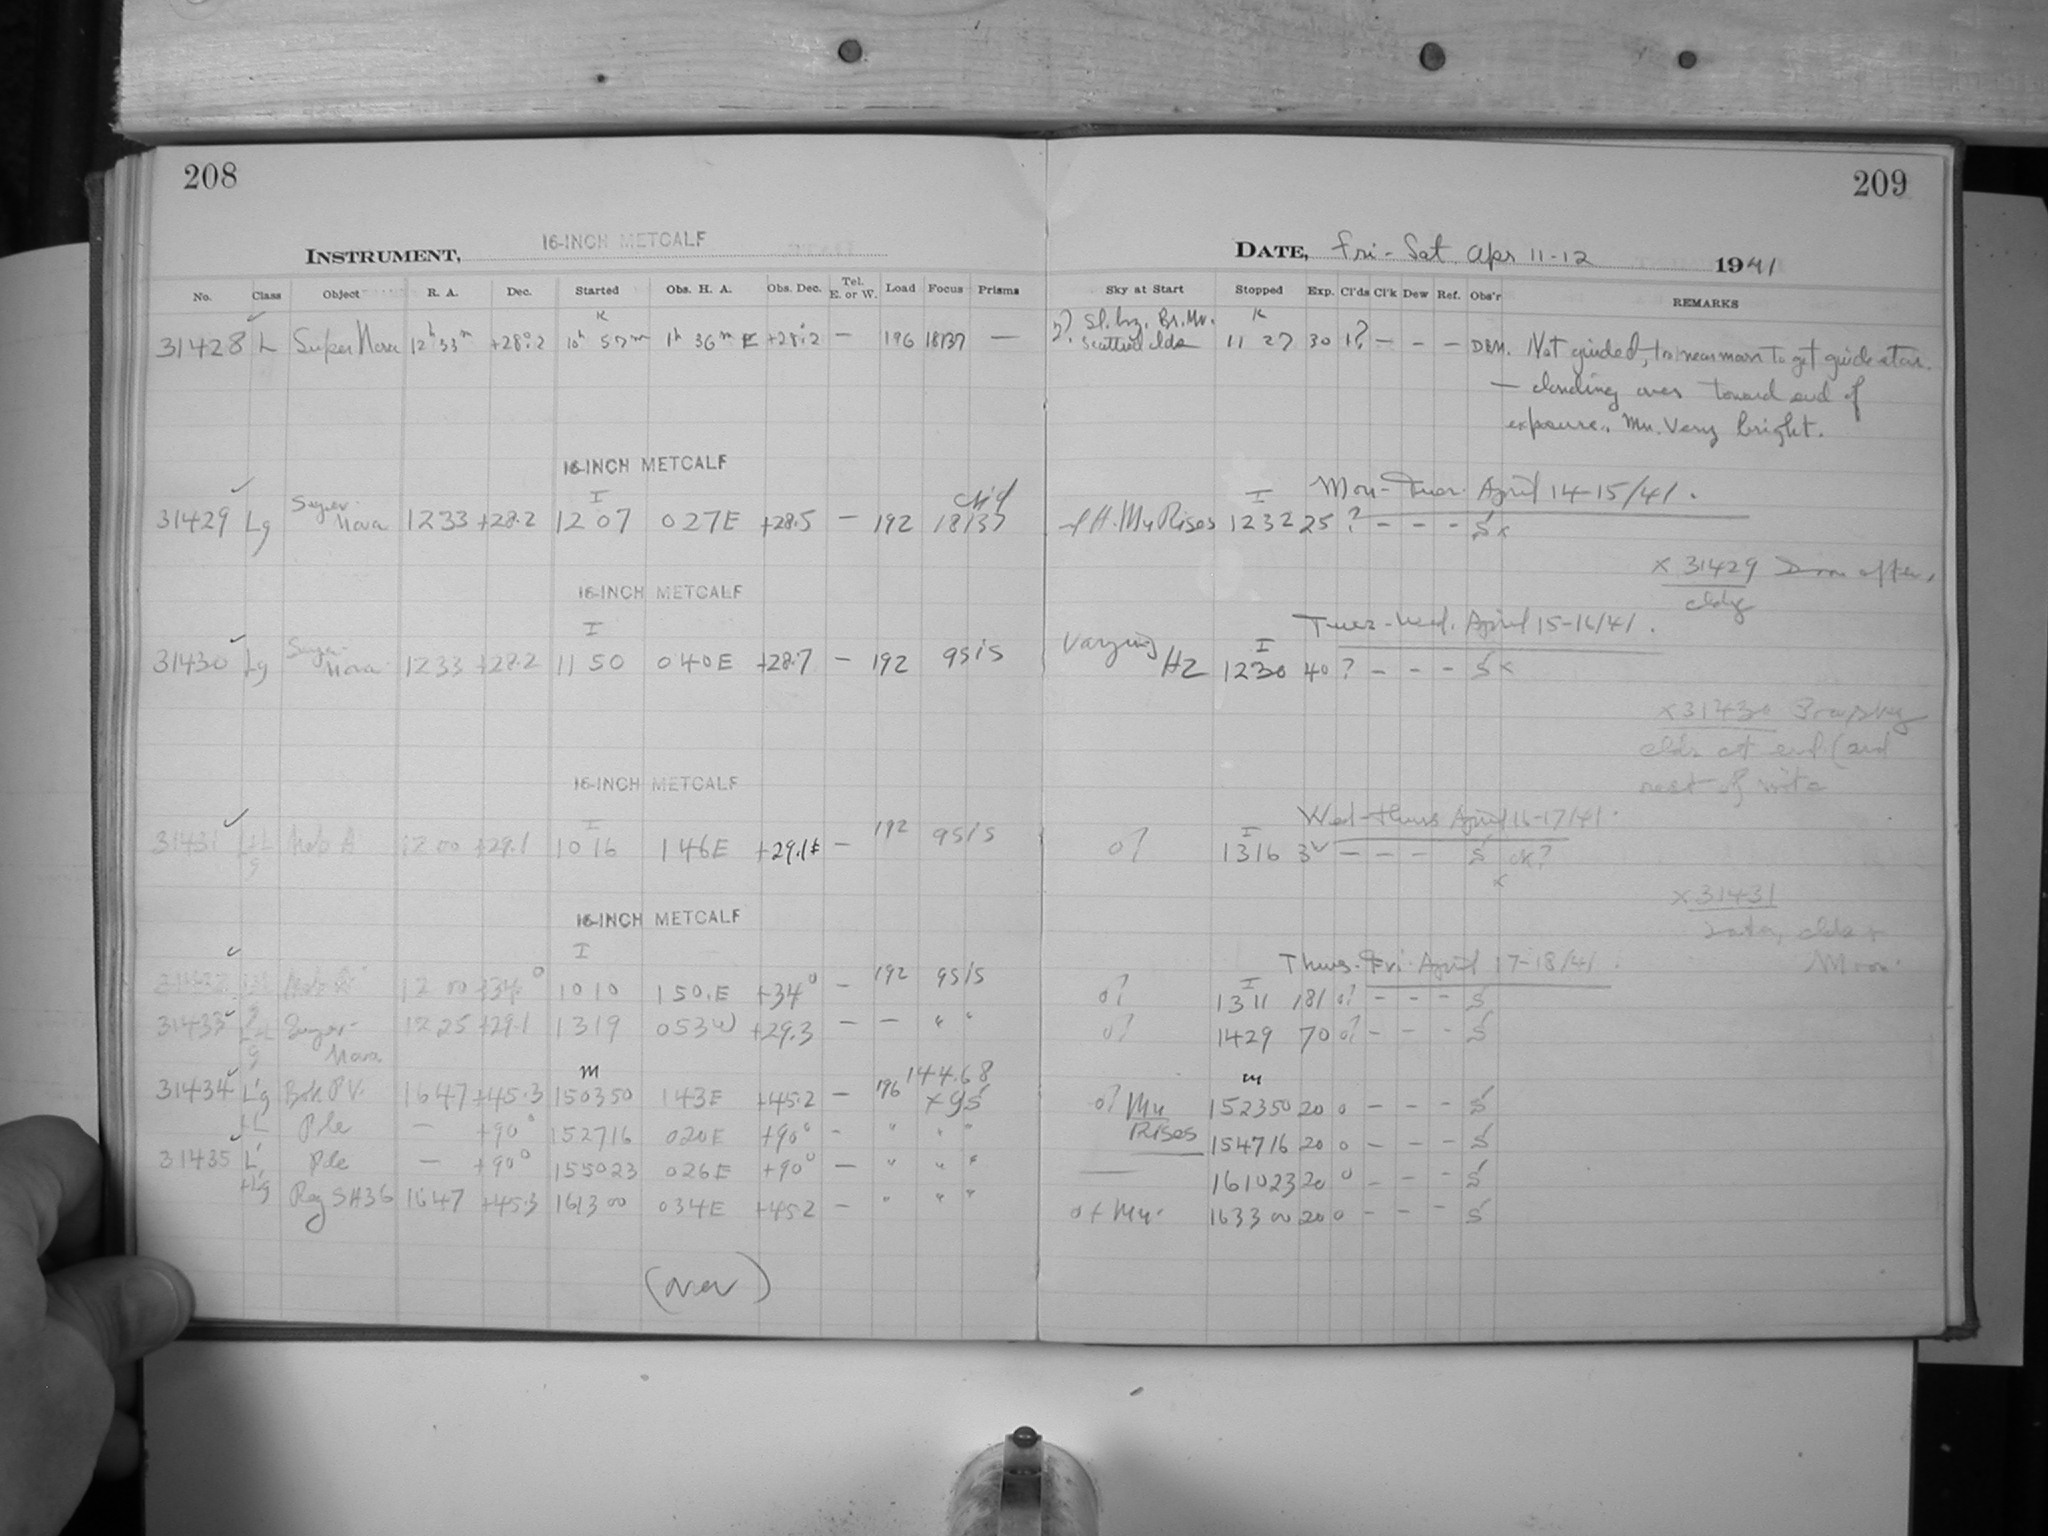 208
209
INSTRUMENT, 16-INCH METCALF
DATE, Fri-Sat Apr 11-12 1941
No. Class Object R. A. Dec. Started Obs. H. A. Obs. Dec. Tel. E. or W. Load Focus Prisms
Sky at Start Stopped Exp. Cl'ds Cl'k Dew Ref. Obs'r REMARKS
31428 L Super Nova 12h 33m +28°.2 10h 57m 1h 36m E +28.2 — 196 18137 —
Sl. hz. Br. Mn. scattered clds 11 27 30 1? — — — DBM. Not guided, too near moon to get guide star.
— clouding over toward end of
exposure. Mn. Very bright.
16-INCH METCALF
Mon-Tues. April 14-15/41.
31429 Lg Super-Nova 1233 +28.2 1207 027E +28.5 — 192 18137
Mn Rises 1232 25 ? — — — S x
x 31429 Dom after,
cldy
16-INCH METCALF
Tues-Wed. April 15-16/41.
31430 Lg Super-Nova 1233 +28.2 1150 040E +28.7 — 192 9515
Varying HZ 1230 40 ? — — — S x
x 31430
clds at end (and
rest of nite
16-INCH METCALF
Wed-Thurs April 16-17/41.
31431 1200 +29.1 1016 146E +29.1 — 192 9515
0? 1316 — — — S ok?
x
x 31431
clds +
Moon.
16-INCH METCALF
Thurs-Fri. April 17-18/41.
31432 1200 +34° 1010 150.E +34° — 192 9515
0? 1311 181 0? — — — S
31433 Super-Nova 1225 +29.1 1319 053W +29.3 — — " "
0? 1429 70 0? — — — S
31434 L'g 1647 +45.3 150350 143E +45.2 — 196 144.68
x95
0? Mn Rises 152350 20 0 — — — S
+L Pole — +90° 152716 020E +90° — " " "
154716 20 0 — — — S
31435 L' Pole — +90° 155023 026E +90° — " " "
161023 20 0 — — — S
+Lg Reg SA36 1647 +45.3 161300 034E +45.2 — " " "
0 + Mn. 163300 20 0 — — — S
(over)